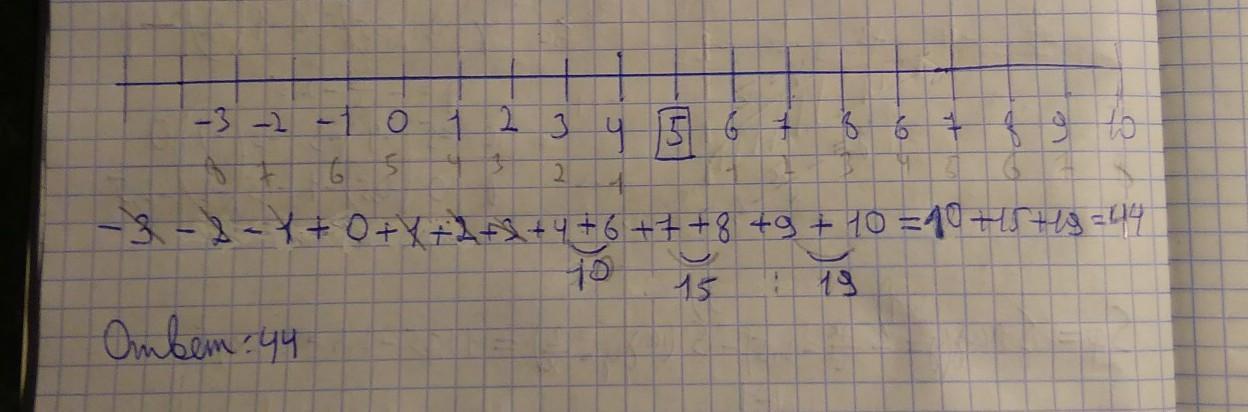 -3 -2 -1 0 1 2 3 4 5 6 7 8 6 7 8 9 10
8 7 6 5 4 3 2 1 1 2 3 4 5 6 7 8
-3 - 2 - 1 + 0 + 1 + 2 + 3 + 4 + 6 + 7 + 8 + 9 + 10 = 10 + 15 + 19 = 44
10 15 : 19
Ответ: 44